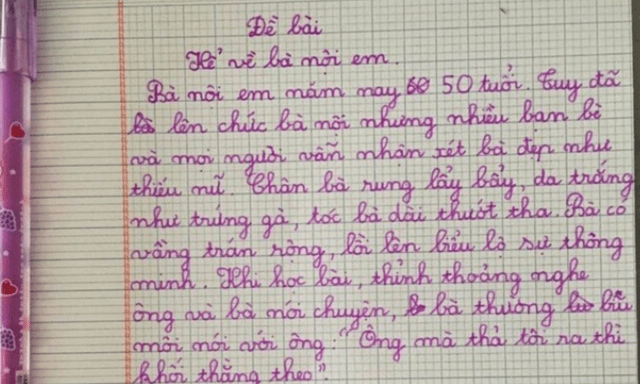 Đề bài
Kể về bà nội em.
Bà nội em năm nay 60 50 tuổi. Tuy đã
bà lên chức bà nội nhưng nhiều bạn bè
và mọi người vẫn nhận xét bà đẹp như
thiếu nữ. Chân bà rung lẩy bẩy, da trắng
như trứng gà, tóc bà dài thướt tha. Bà có
vầng trán rộng, lồi lên biểu lộ sự thông
minh. Khi học bài, thỉnh thoảng nghe
ông và bà nói chuyện, bà thường bĩu
môi nói với ông: "Ông mà thả tôi ra thì
khối thằng theo".